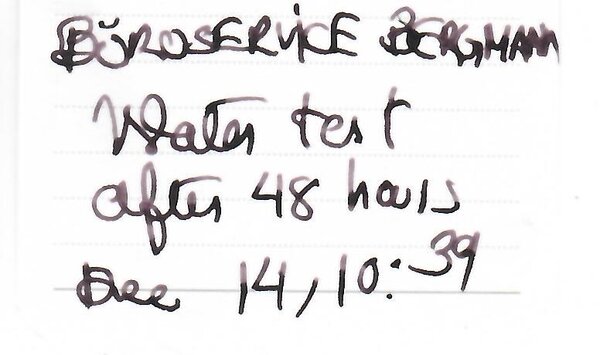 BÜROSERVICE BERGMANN
Water test
after 48 hours
Dec 14, 10:39